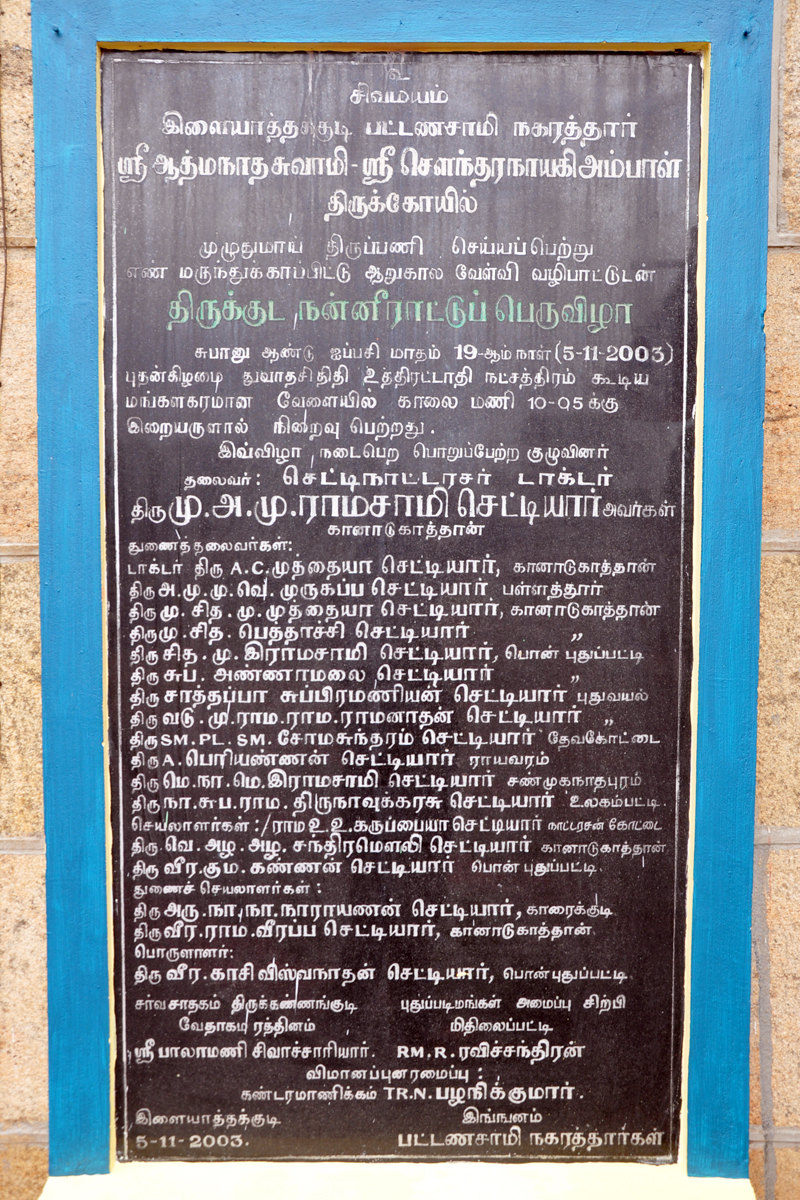 உ
சிவமயம்
இளையாத்தக்குடி பட்டணசாமி நகரத்தார்
ஸ்ரீ ஆத்மநாதசுவாமி - ஸ்ரீ சௌந்தரநாயகி அம்பாள்
திருக்கோயில்
முழுதுமாய் திருப்பணி செய்யப்பெற்று
எண் மருந்துக்காப்பிட்டு ஆறுகால வேள்வி வழிபாட்டுடன்
திருக்குட நன்னீராட்டுப் பெருவிழா
சுபானு ஆண்டு ஐப்பசி மாதம் 19-ஆம் நாள் (5-11-2003)
புதன்கிழமை துவாதசிதிதி உத்திரட்டாதி நட்சத்திரம் கூடிய
மங்களகரமான வேளையில் காலை மணி 10-05 க்கு
இறையருளால் நிறைவு பெற்றது.
இவ்விழா நடைபெற பொறுப்பேற்ற குழுவினர்
தலைவர்: செட்டிநாட்டரசர் டாக்டர்
திரு மு.அ.மு.ராமசாமி செட்டியார் அவர்கள்
கானாடுகாத்தான்
துணைத்தலைவர்கள்:
டாக்டர் திரு A.C.முத்தையா செட்டியார், கானாடுகாத்தான்
திரு அ.மு.மு.வெ. முருகப்ப செட்டியார், பள்ளத்தூர்
திரு மு. சித. மு. முத்தையா செட்டியார், கானாடுகாத்தான்
திரு மு. சித. பெத்தாச்சி செட்டியார் ,,
திரு சித. மு. இராமசாமி செட்டியார், பொன் புதுப்பட்டி
திரு சுப. அண்ணாமலை செட்டியார் ,,
திரு சாத்தப்பா சுப்பிரமணியன் செட்டியார் புதுவயல்
திரு வடு. மு. ராம. ராம. ராமனாதன் செட்டியார் ,,
திரு SM. PL. SM. சோமசுந்தரம் செட்டியார் தேவகோட்டை
திரு A. பெரியண்ணன் செட்டியார் ராயவரம்
திரு மெ. நா. மெ. இராமசாமி செட்டியார் சண்முகநாதபுரம்
திரு நா. சுப. ராம. திருநாவுக்கரசு செட்டியார் உலகம்பட்டி.
செயலாளர்கள்: ராம உ. உ. கருப்பையா செட்டியார் நாட்டரசன் கோட்டை
திரு. வெ. அழ. அழ. சந்திரமௌலி செட்டியார் கானாடுகாத்தான்
திரு வீர. கும. கண்ணன் செட்டியார் பொன் புதுப்பட்டி.
துணைச் செயலாளர்கள்:
திரு அரு. நா. நா. நாராயணன் செட்டியார், காரைக்குடி
திரு வீர. ராம. வீரப்ப செட்டியார், கானாடுகாத்தான்.
பொருளாளர்:
திரு வீர. காசி விஸ்வநாதன் செட்டியார், பொன்புதுப்பட்டி.
சர்வ சாதகம் திருக்கண்ணங்குடி புதுப்படிமங்கள் அமைப்பு சிற்பி
வேதாகம ரத்தினம் மிதிலைப்பட்டி
ஸ்ரீ பாலாமணி சிவாச்சாரியார். RM. R. ரவிச்சந்திரன்
விமானப்புனரமைப்பு:
கண்டரமாணிக்கம் TR.N. பழநிக்குமார்.
இளையாத்தக்குடி இங்ஙனம்
5-11-2003. பட்டணசாமி நகரத்தார்கள்